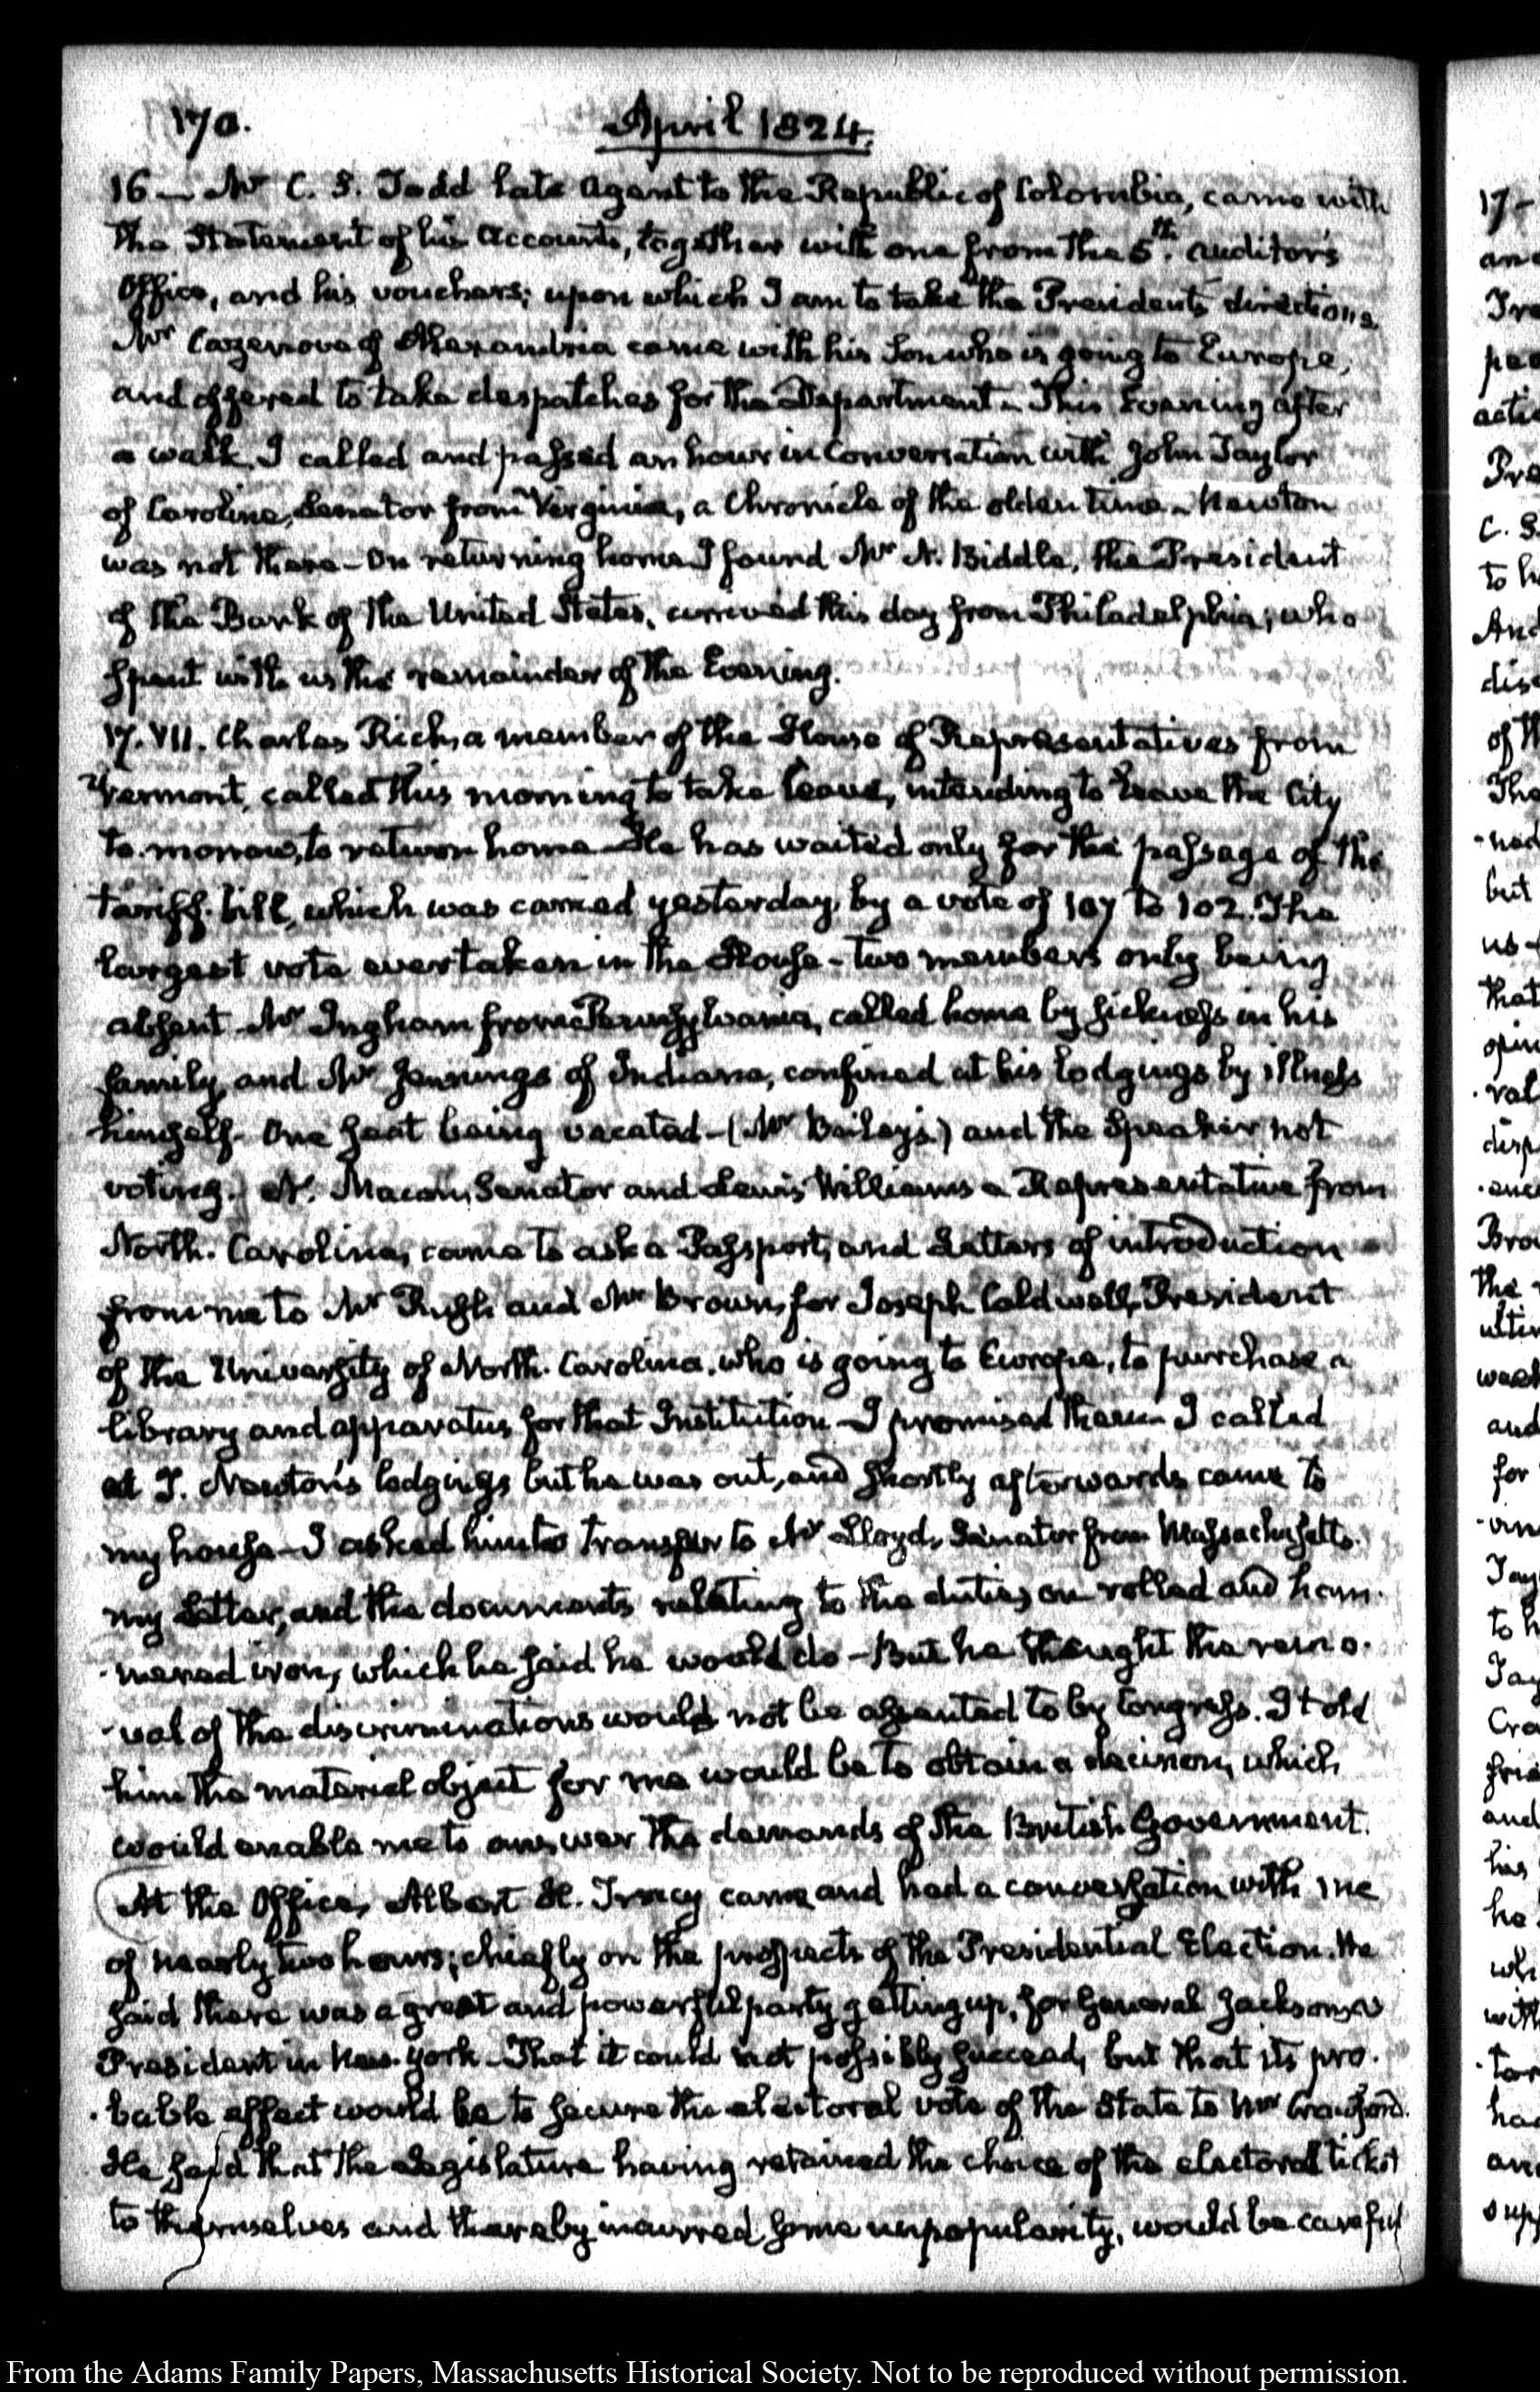 170.
April 1824.
16 — Mr C. S. Todd late Agent to the Republic of Colombia, came with
the Statement of his Accounts, together with one from the 5th. Auditor's
Office, and his vouchers; upon which I am to take the President's directions.
Mr Cazenove of Alexandria came with his Son who is going to Europe,
and offered to take despatches for the Department — This Evening after
a walk I called and passed an hour in Conversation with John Taylor
of Caroline, Senator from Virginia, a Chronicle of the olden time — Newton
was not there — On returning home I found Mr N. Biddle, the President
of the Bank of the United States, arrived this day from Philadelphia; who
spent with us the remainder of the Evening.
17. VII. Charles Rich, a member of the House of Representatives from
Vermont, called this morning to take leave, intending to leave the City
to-morrow, to return home — He has waited only for the passage of the
tariff-bill, which was carried yesterday, by a vote of 107 to 102. The
largest vote ever taken in the House — two members only being
absent — Mr Ingham from Pennsylvania, called home by sickness in his
family, and Mr Jennings of Indiana, confined at his lodgings by illness
himself. One seat being vacated — (Mr Bailey's) and the Speaker not
voting. N. Macon, Senator and Lewis Williams a Representative from
North-Carolina, came to ask a Passport, and Letters of introduction
from me to Mr Rush and Mr Brown, for Joseph Caldwell, President
of the University of North-Carolina, who is going to Europe, to purchase a
library and apparatus for that Institution — I promised them — I called
at T. Newton's lodgings but he was out, and shortly afterwards came to
my house — I asked him to transfer to Mr Lloyd, Senator from Massachusetts
my Letter, and the documents relating to the duties on rolled and ham-
-mered iron, which he said he would do — But he thought the remo-
-val of the discriminations would not be assented to by Congress. I told
him the material object for me would be to obtain a decision, which
would enable me to answer the demands of the British Government.
At the Office, Albert H. Tracy came and had a conversation with me
of nearly two hours; chiefly on the prospects of the Presidential Election. He
said there was a great and powerful party getting up, for General Jackson as
President in New-York — That it could not possibly succeed, but that its pro-
-bable effect would be to secure the electoral vote of the State to Mr Crawford.
He said that the Legislature having retained the choice of the electoral ticket
to themselves and thereby incurred some unpopularity, would be careful
17 -
C. S.
to h
of th
but
us
that
the
and
for
to h
Cra
and
his
he
with
From the Adams Family Papers, Massachusetts Historical Society. Not to be reproduced without permission.